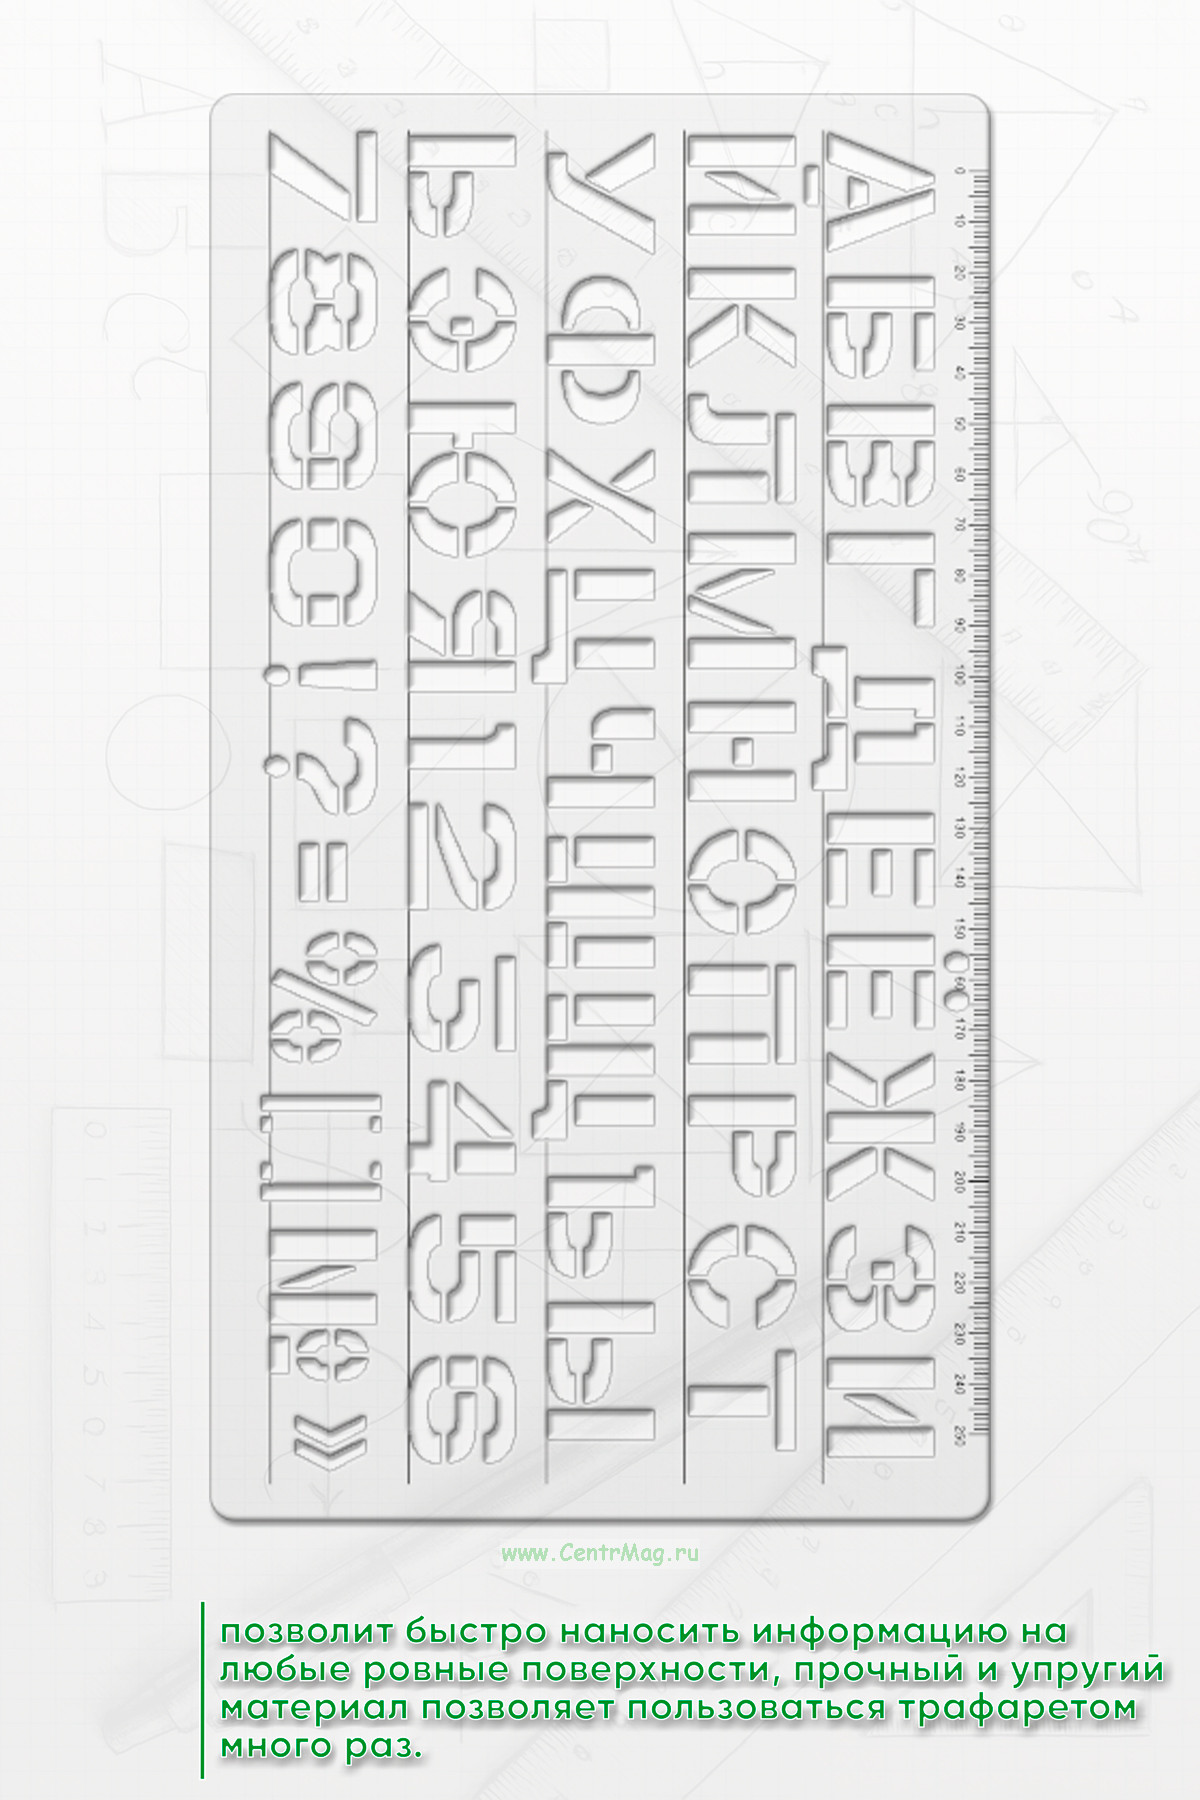 АБВГДЕЕЖЗИ
ЙКЛМНОПРСТ
УФХЦЧШЩЪЫ
ЬЭЮЯ123456
7890!?=%[]№»
0 10 20 30 40 50 60 70 80 90 100 110 120 130 140 150 160 170 180 190 200 210 220 230 240 250
www.CentrMag.ru
позволит быстро наносить информацию на
любые ровные поверхности, прочный и упругий
материал позволяет пользоваться трафаретом
много раз.